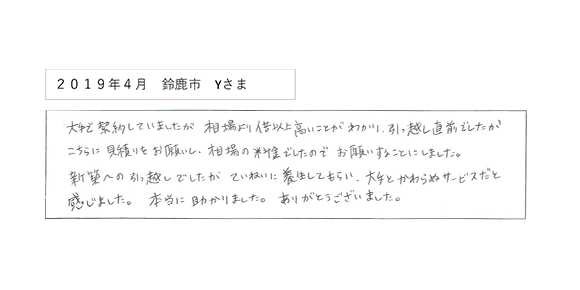 ２０１９年４月　鈴鹿市　Yさま
大手で契約していましたが 相場より倍以上高いことがわかり、引っ越し直前でしたが
こちらに見積りをお願いし、相場の料金でしたので お願いすることにしました。
新築への引っ越しでしたが ていねいに養生してもらい、大手とかわらぬサービスだと
感じました。 本当に助かりました。 ありがとうございました。